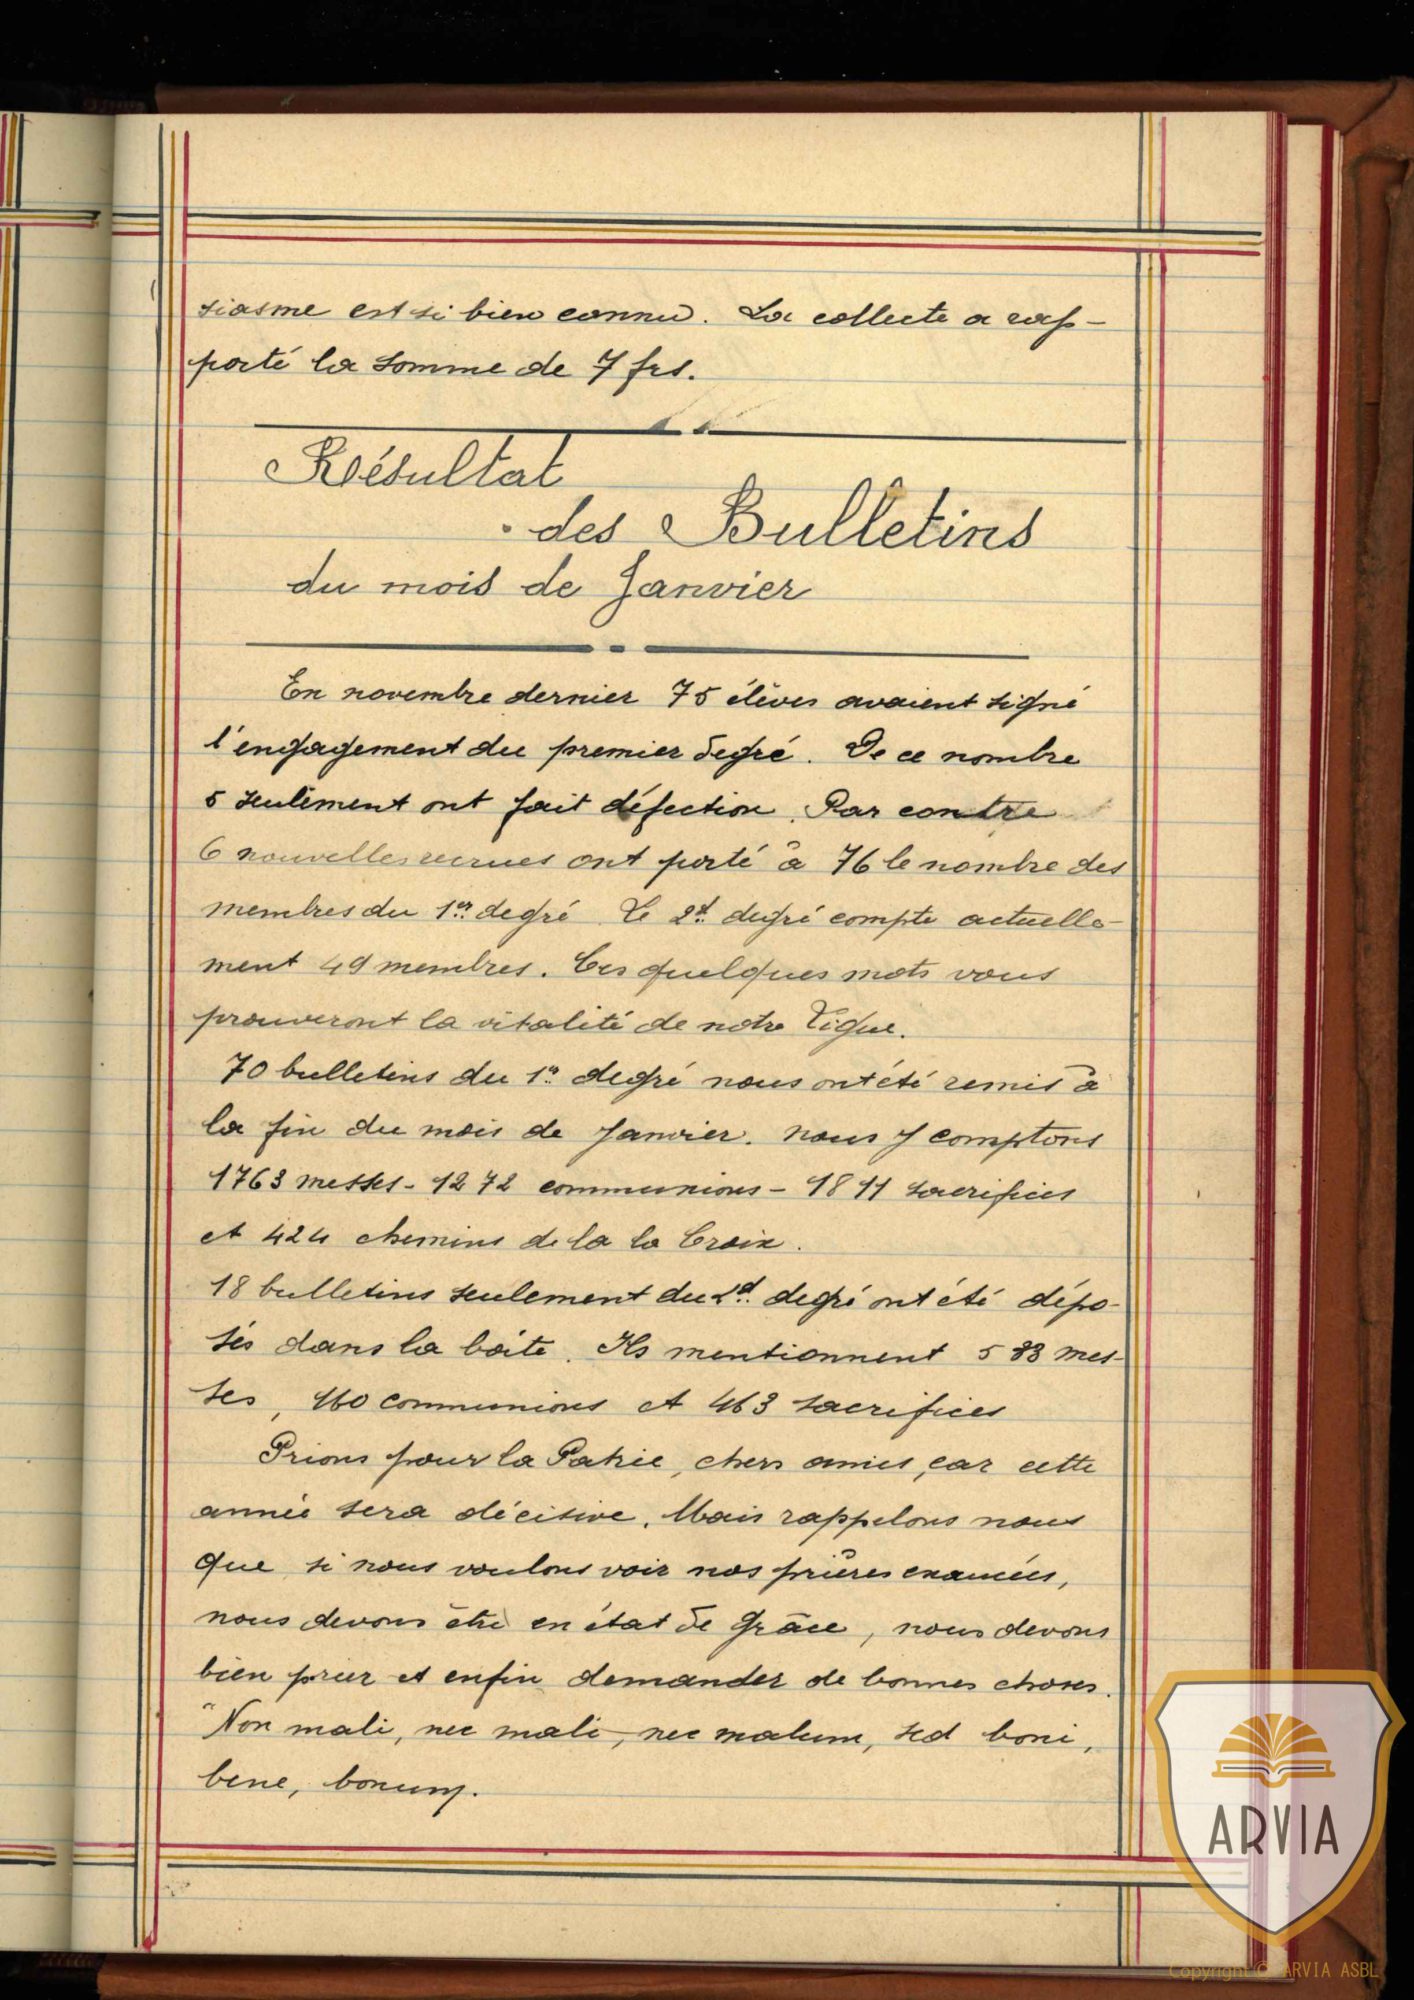 siasme est si bien connu. La collecte a rap-
porté la somme de 7 frs.
Résultat
des Bulletins
du mois de Janvier
En novembre dernier 75 élèves avaient signé
l'engagement du premier degré. De ce nombre
5 seulement ont fait défection. Par contre
6 nouvelles recrues ont porté à 76 le nombre des
membres du 1er degré. Le 2d degré compte actuelle-
ment 49 membres. Ces quelques mots vous
prouveront la vitalité de notre Ligue.
70 bulletins du 1er degré nous ont été remis à
la fin du mois de Janvier. nous y comptons
1763 messes - 1272 communions - 1811 sacrifices
et 424 chemins de la la Croix.
18 bulletins seulement du 2d degré ont été dépo-
sés dans la boîte. Ils mentionnent 583 mes-
ses, 460 communions et 463 sacrifices
Prions pour la Patrie, chers amis, car cette
année sera décisive. Mais rappelons nous
que si nous voulons voir nos prières exaucées,
nous devons être en état de grâce, nous devons
bien prier et enfin demander de bonnes choses.
"Non mali, nec male, nec malum, sed boni,
bene, bonum.
ARVIA
Copyright © ARVIA ASBL